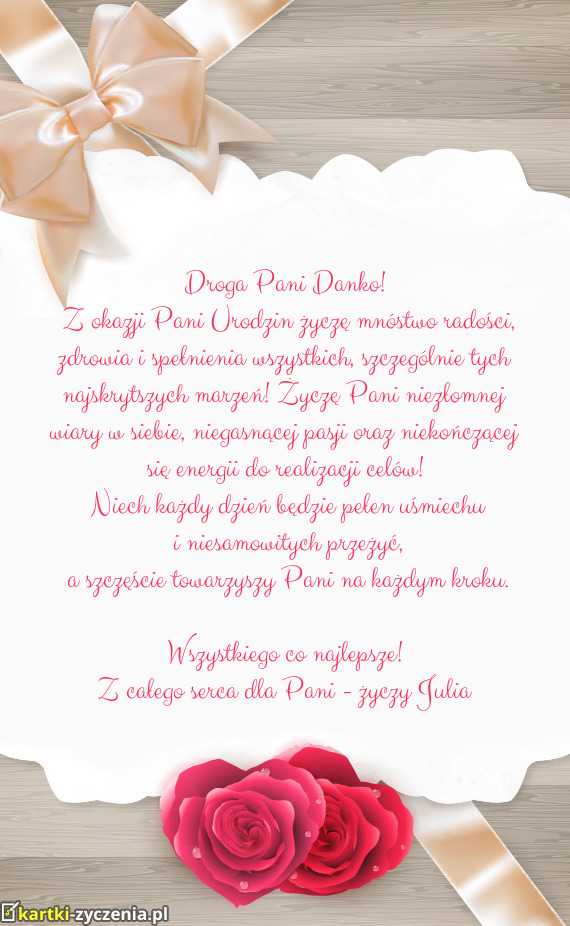 Droga Pani Danko!
Z okazji Pani Urodzin życzę mnóstwo radości,
zdrowia i spełnienia wszystkich, szczególnie tych
najskrytszych marzeń! Życzę Pani niezłomnej
wiary w siebie, niegasnącej pasji oraz niekończącej
się energii do realizacji celów!
Niech każdy dzień będzie pełen uśmiechu
i niesamowitych przeżyć,
a szczęście towarzyszy Pani na każdym kroku.
Wszystkiego co najlepsze!
Z całego serca dla Pani - życzy Julia
kartki-zyczenia.pl